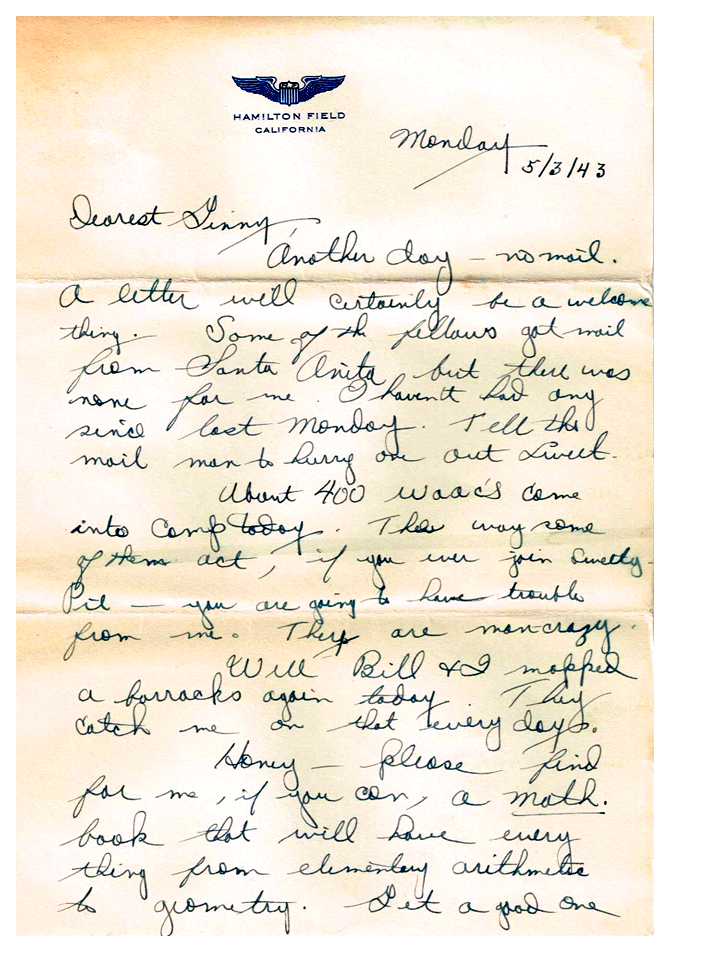 HAMILTON FIELD
CALIFORNIA
Monday
5/3/43
Dearest Ginny,
Another day – no mail.
A letter will certainly be a welcome
thing. Some of the fellows got mail
from Santa Anita but there was
none for me. I haven't had any
since last Monday. Tell the
mail man to hurry one out Sweet.
About 400 WAAC'S come
into Camp today. The way some
of them act, if you ever join Sweety-
Pie – you are going to have trouble
from me. They are man-crazy.
Well Bill & I mopped
a barracks again today. They
catch me on that every day.
Honey – please find
for me, if you can, a math.
book that will have every
thing from elementary arithmetic
to geometry. Get a good one